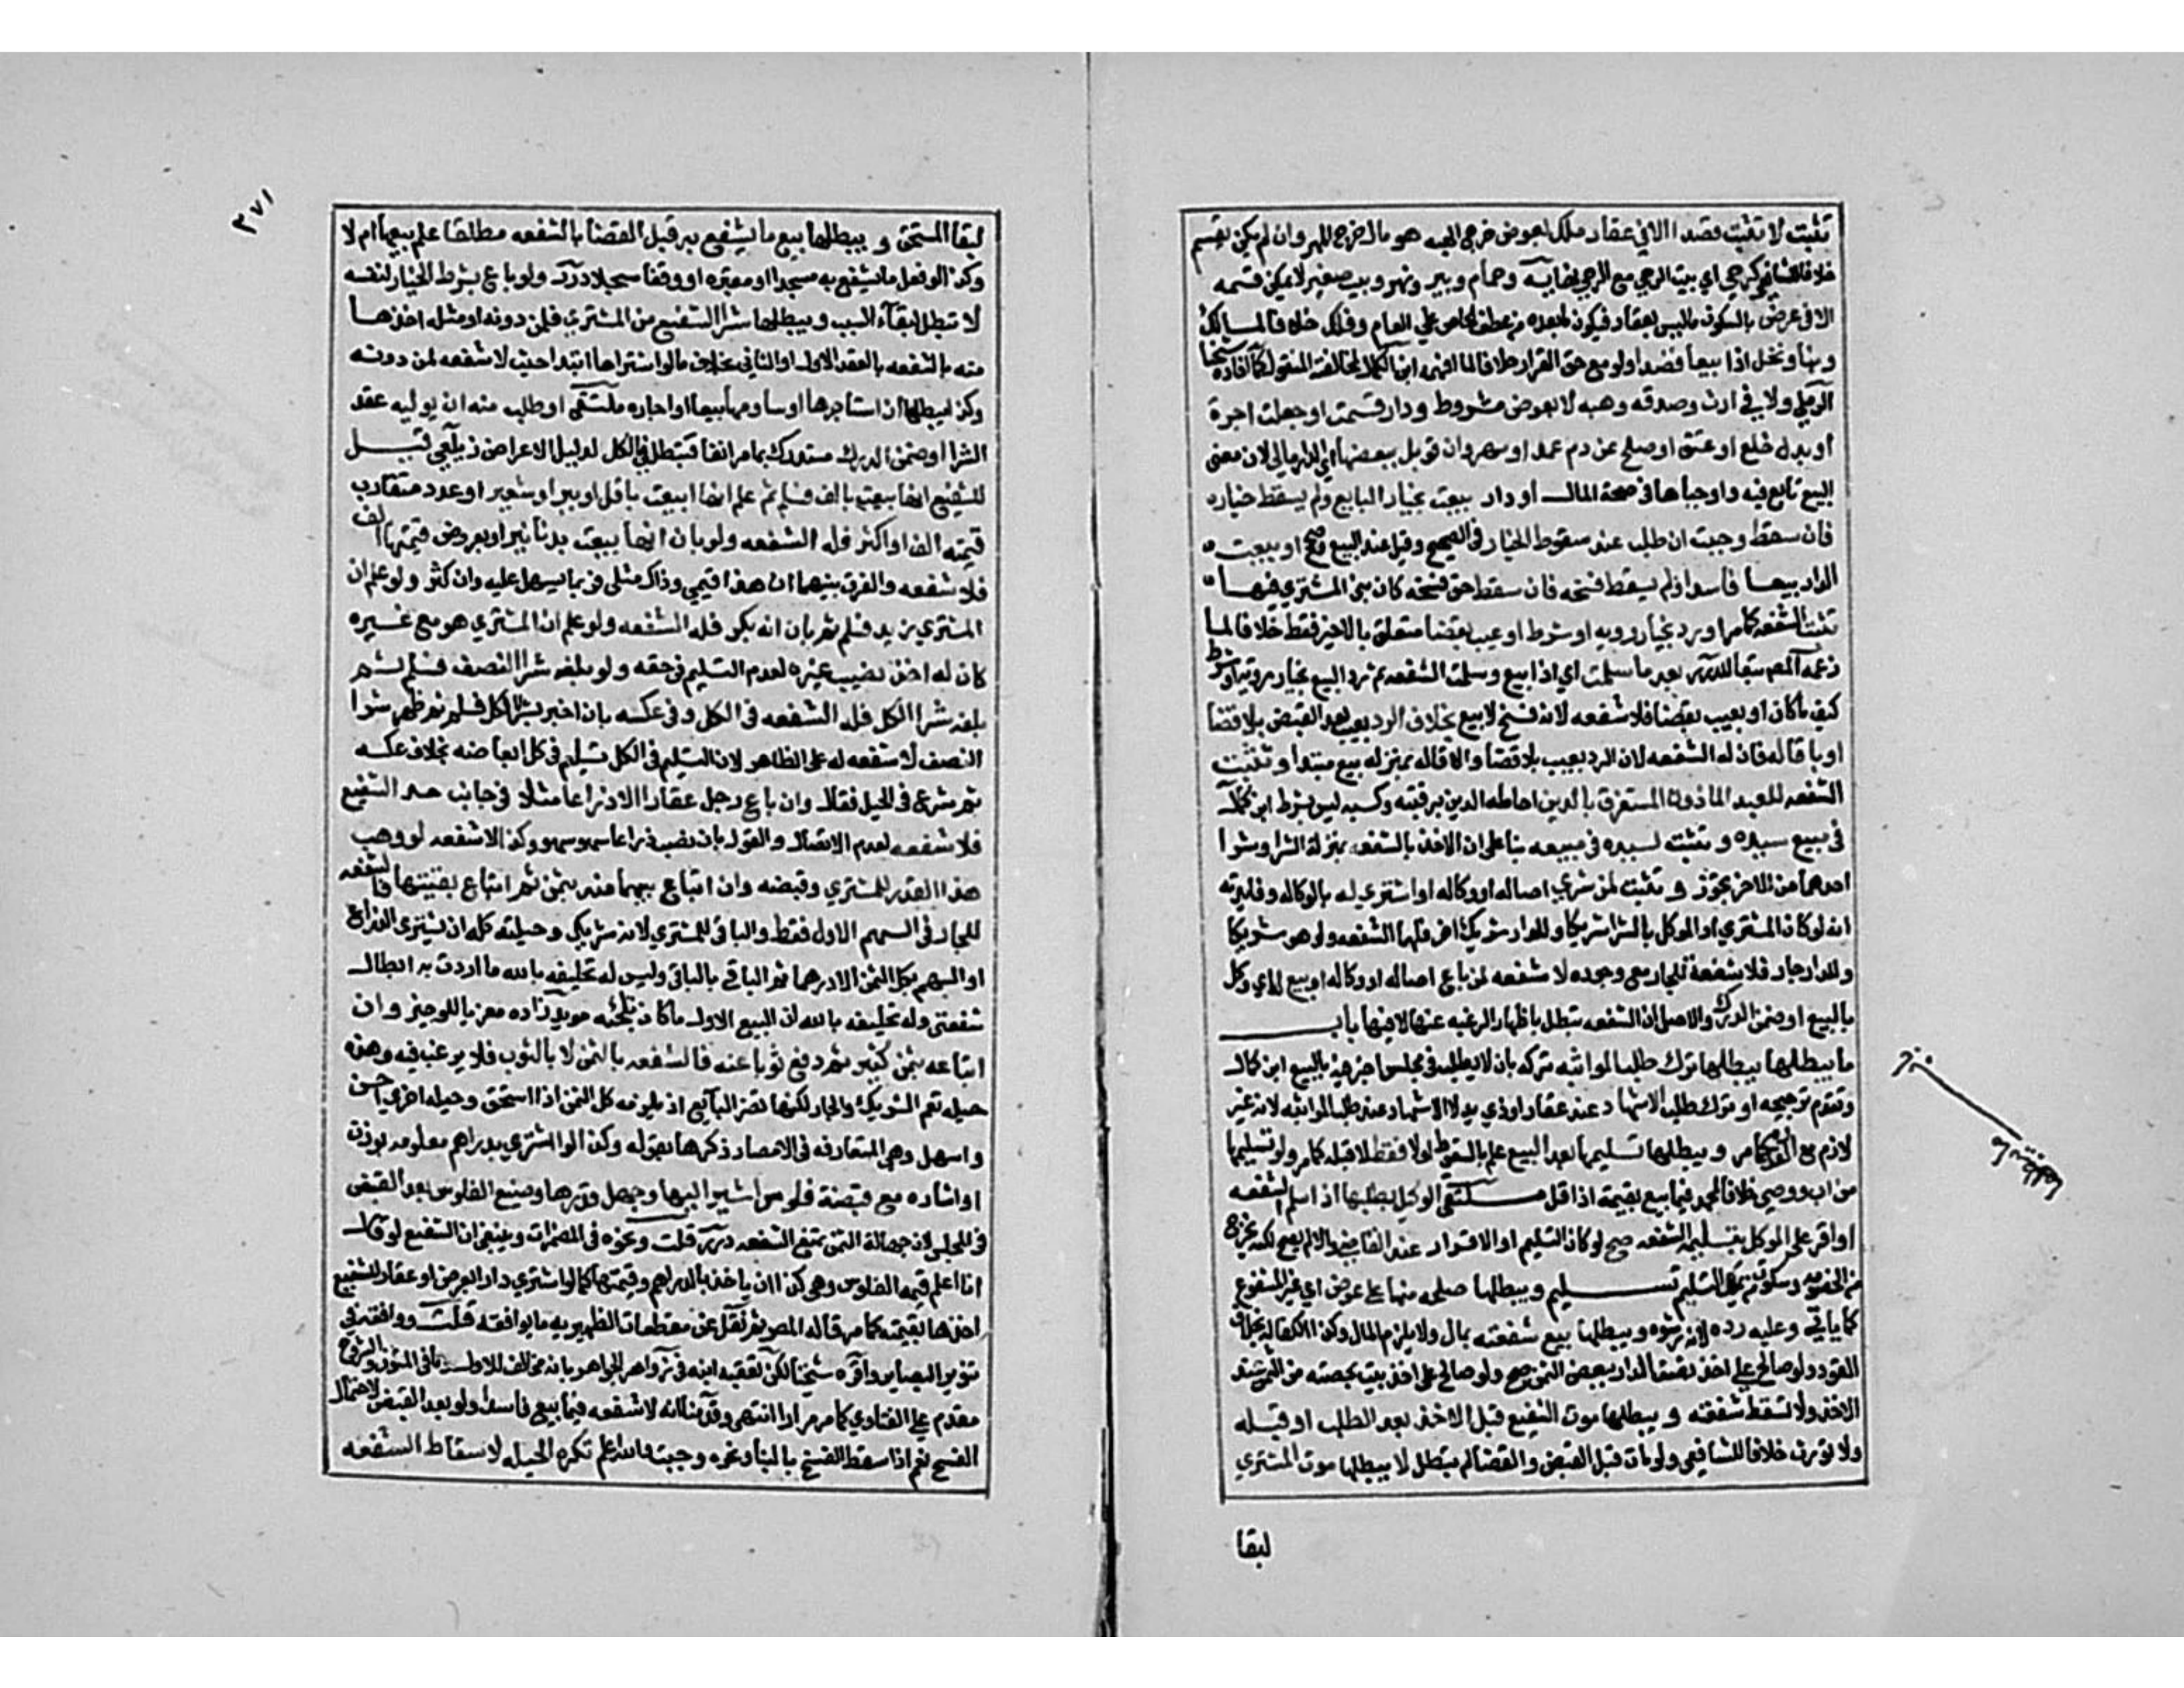 تثبت لا تثبت قصدا الا في عقار ملك بعوض خرج الهبه هو مال خرج المهر وان لم يكن يقسم
خلافا للشافعي كرحي اي بيت الرحي مع الرحي نهايه وحمام وبير ونهر وبيت صغير لا يمكن قسمه
الا في عرض بالسكون ما ليس بعقار فيكون ما بعده من عطف الخاص علي العام وفلك خلافا لمالك
وبنا ونخل اذا بيعا قصدا ولو مع حق القرار خلافا لما فهمه ابن الكمال لمخالفته المنقول كما افاده شيخنا
الرملي ولا في ارث وصدقه وهبه لا بعوض مشروط ودار قسمت او جعلت اجرة
او بدل خلع او عتق او صلح عن دم عمد او مهر وان قوبل ببعضها اي الدار مال لان معنى
البيع تابع فيه واوجباها في حصة المال او دار بيعت بخيار البايع ولم يسقط خياره
فان سقط وجبت ان طلب عند سقوط الخيار في الصحيح وقيل عند البيع وصحح او بيعت
الدار بيعا فاسدا ولم يسقط فسخه فان سقط حق فسخه كان بنى المشتري فيها
تثبت الشفعه كما مر او رد بخيار رويه او شرط او عيب بقضا متعلق بالاخير فقط خلافا لما
زعمه المص تبعا للدرر بعد ما سلمت اي اذا بيع وسلمت الشفعه ثم رد البيع بخيار رويه او شرط
كيف ما كان او بعيب بقضا فلا شفعه لانه فسخ لا بيع بخلاف الرد بعيب بعد القبض بلا قضا
او باقاله فان له الشفعه لان الرد بعيب بلا قضا والاقاله بمنزله بيع مبتدا وتثبت
الشفعه للعبد الماذون المستغرق بالدين احاطه الدين برقبته وكسبه ليس بشرط ابن كمال
في مبيع سيده وتثبت لسيده في مبيعه بنا على ان الاخذ بالشفعه بمنزلة الشرا وشرا
احدهما من الاخر يجوز وتثبت لمن شري اصاله او وكاله او اشتري له بالوكاله وفايدته
انه لو كان المشتري او الموكل بالشرا شريكا وللدار شريك اخر فلهما الشفعه ولو هو شريكا
وللدار جار فلا شفعة للجار مع وجوده لا شفعه لمن باع اصاله او وكاله او بيع له اي وكل
بالبيع او ضمن الدرك والاصل ان الشفعه تبطل باظهار الرغبه عنها لا فيها باب
ما يبطلها يبطلها ترك طلب المواثبه تركه بان لا يطلب في مجلس اخبر فيه بالبيع ابن كمال
وتقدم ترجيحه او ترك طلب الاشهاد عند عقار او ذي يد لا الاشهاد عند طلب المواثبه لانه غير
لازم مع القدره كما مر ويبطلها تسليمها بعد البيع علم بالسقوط اولا فقط لا قبله كما مر ولو تسليمها
من اب ووصي خلافا لمحمد فيما بيع بقيمته اذا قل ملتقى الوكيل بطلبها اذا سلم الشفعه
او اقر على الموكل بتسليمه الشفعه صح لو كان التسليم او الاقرار عند القاضي والا لم يصح لكنه يخرج
من الخصومه وسكوت من يملك التسليم تسليم ويبطلها صلحه منها على عوض اي غير المشفوع
كما ياتي وعليه رده لانه رشوه ويبطلها بيع شفعته بمال ولا يلزم المال وكذا الكفاله بخلاف
القود ولو صالح على اخذ نصف الدار ببعض الثمن صح ولو صالح على اخذ بيت بحصته من الثمن
الاخذ ولا تسقط شفعته ويبطلها موت الشفيع قبل الاخذ بعد الطلب او قبله
ولا تورث خلافا للشافعي ولو مات قبل القبض والقضا لم تبطل لا يبطلها موت المشتري
لبقا
٢٧١
لبقا المستحق ويبطلها بيع ما يشفع به قبل القضا بالشفعه مطلقا علم ببيعها ام لا
وكذا لو جعل ما يشفع به مسجدا او مقبره او وقفا مسجلا درر ولو باع بشرط الخيار لنفسه
لا تبطل لبقاء السبب ويبطلها شرا الشفيع من المشتري فلمن دونه او مثله اخذها
منه بالشفعه بالعقد الاول او الثاني بخلاف ما لو اشتراها ابتدا حيث لا شفعه لمن دونه
وكذا يبطلها ان استاجرها او ساومها بيعا او اجاره ملتقى او طلب منه ان يوليه عقد
الشرا او ضمن الدرك مستدرك بما مر انفا فتبطل في الكل لدليل الاعراض زيلعي قيل
للشفيع انها بيعت بالف فسلم ثم علم انها بيعت باقل او ببر او شعير او عدد متقارب
قيمته الف او اكثر فله الشفعه ولو بان انها بيعت بدنانير او بعروض قيمتها الف
فلا شفعه والفرق بينهما ان هذا قيمي وذاك مثلى فربما يسهل عليه وان كثر ولو علم ان
المشتري زيد فسلم ثم بان انه بكر فله الشفعه ولو علم ان المشتري هو مع غيره
كان له اخذ نصيب غيره لعدم التسليم في حقه ولو بلغه شرا النصف فسلم ثم
بلغه شرا الكل فله الشفعه في الكل وفي عكسه بان اخبر بشرا الكل فسلم ثم ظهر شرا
النصف لا شفعه له على الظاهر لان التسليم في الكل تسليم في كل ابعاضه بخلاف عكسه
ثم شرع في الحيل فقال وان باع رجل عقارا الا ذراعا مثلا في جانب حد الشفيع
فلا شفعه لعدم الاتصال والقول بان نصب ذراعا سهو سهو وكذا لا شفعه لو وهب
هذا القدر للمشتري وقبضه وان ابتاع سهما منه بثمن ثم ابتاع بقيتها فالشفعه
للجار في السهم الاول فقط والباقي للمشتري لانه شريك وحيلته كله ان يشتري الذراع
او السهم بكل الثمن الا درهما ثم الباقي بالباقي وليس له تحليفه بالله ما اردت به ابطال
شفعتي وله تحليفه بالله ان البيع الاول ما كان تلجئه مويد زاده معزيا للوجيز وان
ابتاعه بثمن كثير ثم دفع ثوبا عنه فالشفعه بالثمن لا بالثوب فلا يرغب فيه وهذه
حيله تعم الشريك والجار لكنها تضر البايع اذ يلزمه كل الثمن اذا استحق وحيله اخري احسن
واسهل وهي المتعارفه في الامصار ذكرها بقوله وكذا لو اشتري بدراهم معلومه بوزن
او اشاره مع قبضة فلوس اشير اليها وجهل قدرها وضيع الفلوس بعد القبض
في المجلس لان جهالة الثمن تمنع الشفعه درر قلت ونحوه في المضمرات وينبغي ان الشفيع لو قال
انا اعلم قيمه الفلوس وهي كذا ان ياخذ بالدراهم وقيمتها كما لو اشتري دارا بعرض او عقار للشفيع
اخذها بقيمته كما مر قاله المص ثم نقل عن مقطعات الظهيريه ما يوافقه قلت ووافقه في
تنوير البصاير واقره شيخنا لكن تعقبه ابنه في زواهر الجواهر بانه مخالف للاول وما في المتون والشروح
مقدم على الفتاوي كما مر مرارا انتهى وقدمنا انه لا شفعه فيما بيع فاسدا ولو بعد القبض لاحتمال
الفسخ نعم اذا سقط الفسخ بالبنا ونحوه وجبت والله اعلم تكره الحيله لاسقاط الشفعه